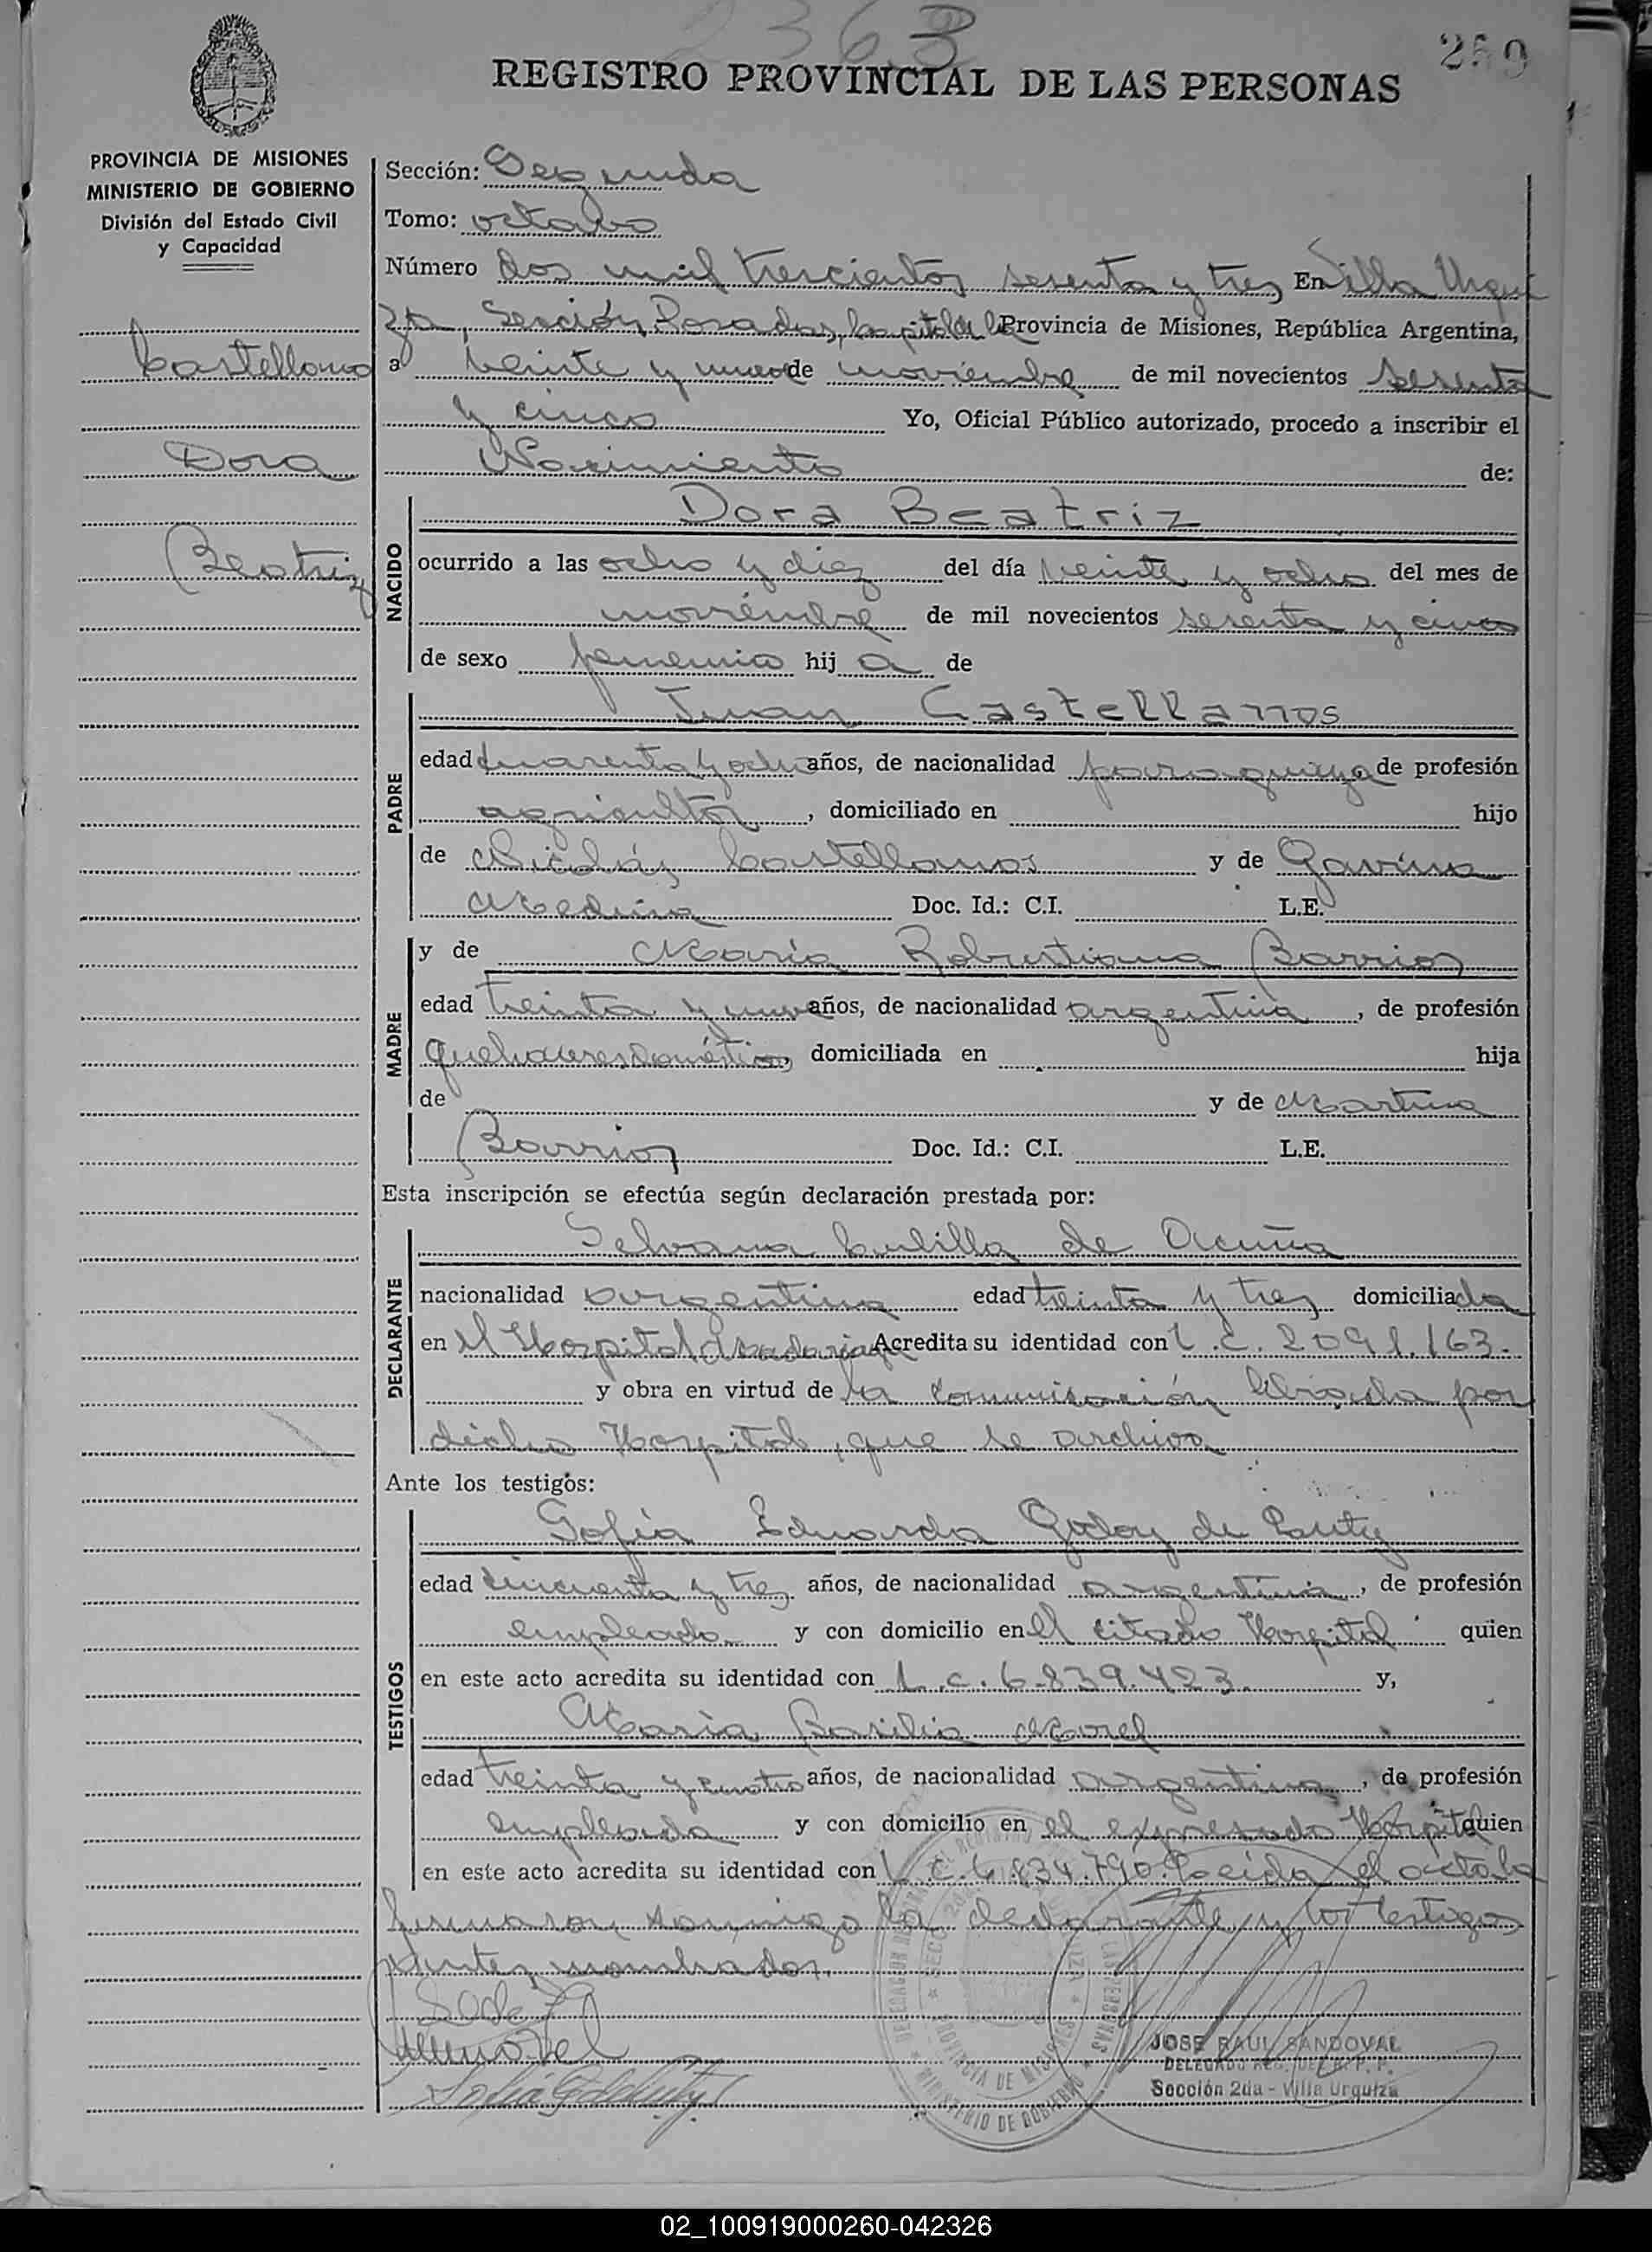 2363
259
REGISTRO PROVINCIAL DE LAS PERSONAS
PROVINCIA DE MISIONES
MINISTERIO DE GOBIERNO
División del Estado Civil
y Capacidad
Castellano
Dora
Beatriz
Sección: Segunda
Tomo: octabo
Número dos mil trescientos sesenta y tres En Villa Urqui
za, Sección Posadas, Capital de la Provincia de Misiones, República Argentina,
a veinte y nueve de noviembre de mil novecientos sesenta
y cinco Yo, Oficial Público autorizado, procedo a inscribir el
Nacimiento de:
NACIDO
Dora Beatriz
ocurrido a las ocho y diez del día veinte y ocho del mes de
noviembre de mil novecientos sesenta y cinco
de sexo femenino hij a de
PADRE
Juan Castellanos
edad cuarenta y ocho años, de nacionalidad paraguaya de profesión
agricultor, domiciliado en hijo
de Nicolás Castellanos y de Gavina
Medina Doc. Id.: C.I. L.E.
MADRE
y de María Robustiana Barrios
edad treinta y nueve años, de nacionalidad argentina, de profesión
quehaceres domésticos, domiciliada en hija
de y de Martina
Barrios Doc. Id.: C.I. L.E.
Esta inscripción se efectúa según declaración prestada por:
DECLARANTE
de Acuña
nacionalidad argentina edad treinta y tres domiciliada
en el Hospital Madariaga Acredita su identidad con L.C. 2091.163.
y obra en virtud de la comunicación librada por
dicho Hospital, que se archiva
Ante los testigos:
TESTIGOS
Sofía Eduarda Godoy de
edad cincuenta y tres años, de nacionalidad argentina, de profesión
empleada y con domicilio en el citado Hospital quien
en este acto acredita su identidad con L.C. 6.839.423. y,
María Basilia Morel
edad treinta y cuatro años, de nacionalidad argentina, de profesión
empleada y con domicilio en el expresado Hospital quien
en este acto acredita su identidad con L.C. 6.834.790. Leída el acta la
firmaron conmigo la declarante y los testigos
antes nombrados.
JOSE RAUL SANDOVAL
DELEGADO REG. DEL R.P.P.
Sección 2da - Villa Urquiza
02_100919000260-042326